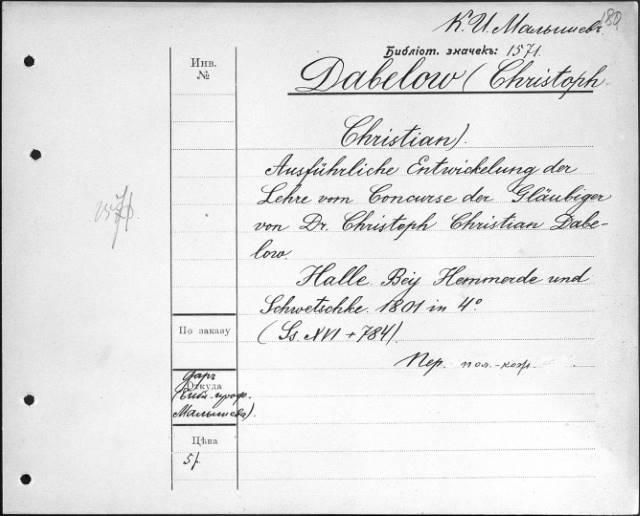 180
К. И. Малышевъ
Библіот. значекъ: 1571.
Инв.
№
Dabelow (Christoph
Christian).
Ausführliche Entwickelung der
Lehre vom Concurse der Gläubiger
von Dr. Christoph Christian Dabe-
low.
Halle. Bey Hemmerde und
Schwetschke. 1801 in 4°
(Ss. XVI + 784).
Пер. пол.-кож.
1571.
По заказу
Даръ
Откуда
(Библ. проф.
Малышева).
Цѣна
5/